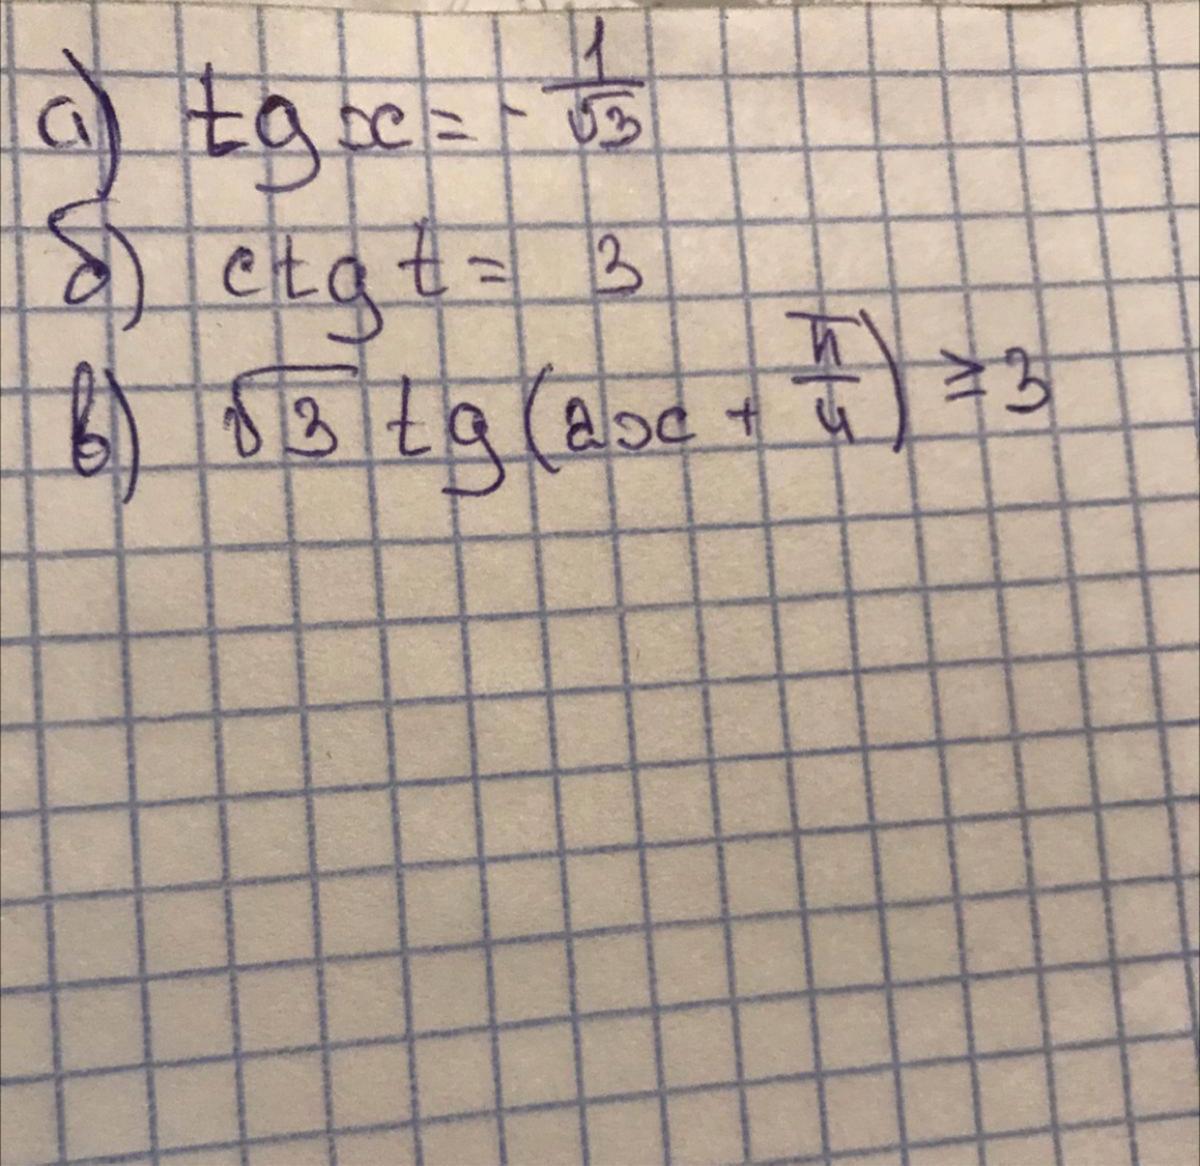 а) tg x = - 1/√3
б) ctg t = 3
в) √3 tg (2x + π/4) ≥ 3